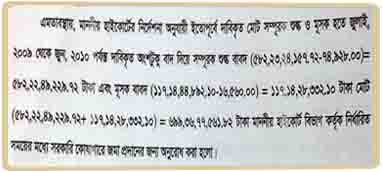 এমতাবস্থায়, মাননীয় হাইকোর্টের নির্দেশনা অনুযায়ী ইতোপূর্বে দাবিকৃত মোট সম্পূরক শুল্ক ও মূসক হতে জুলাই,
২০০৯ থেকে জুন, ২০১০ পর্যন্ত দাবিকৃত অংশটুকু বাদ দিয়ে সম্পূরক শুল্ক বাবদ (৫৮২,২৩,২৪,১৫৭.৭২-৭৪,৯২৮.০০)=
৫৮২,২২,৪৯,২২৯.৭২ টাকা এবং মূসক বাবদ (১১৭,১৪,৪৪,৮৯২.১০-১৬,৫৬০.০০) = ১১৭,১৪,২৮,৩৩২.১০ টাকা মোট
(৫৮২,২২,৪৯,২২৯.৭২+ ১১৭,১৪,২৮,৩৩২.১০) = ৬৯৯,৩৬,৭৭,৫৬১.৮২ টাকা মাননীয় হাইকোর্ট বিভাগ কর্তৃক নির্ধারিত
সময়ের মধ্যে সরকারি কোষাগারে জমা প্রদানের জন্য অনুরোধ করা হলো।